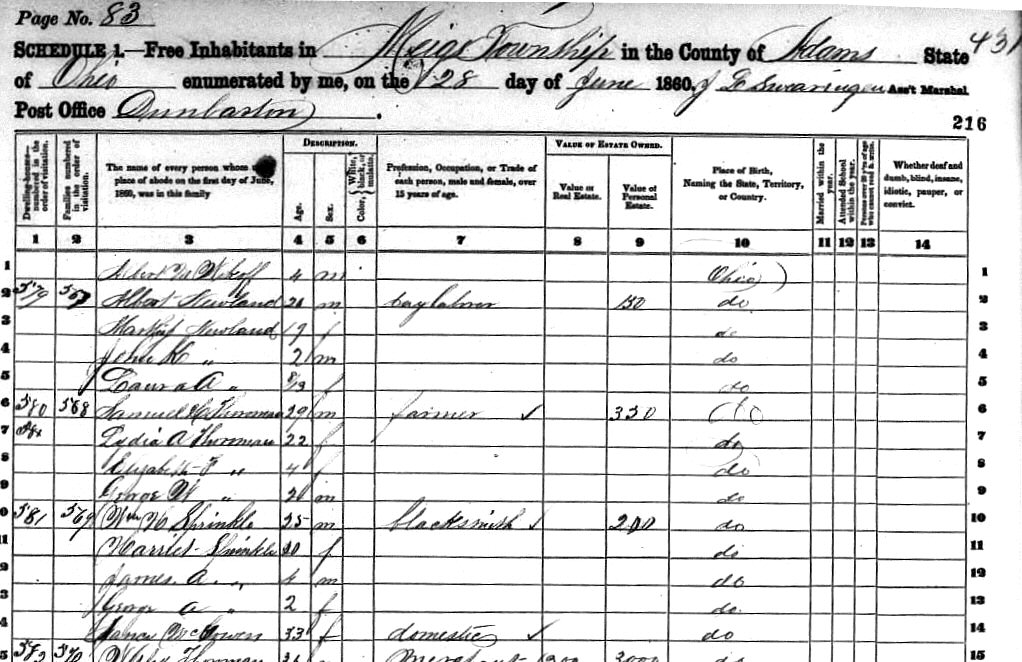 Page No. 83
SCHEDULE 1.—Free Inhabitants in Meigs Township in the County of Adams State 431
of Ohio enumerated by me, on the 28 day of June 1860. Ass't Marshal
Post Office Dunbarton.
216
Dwelling-house—numbered in the order of visitation.
Families numbered in the order of visitation.
The name of every person whose place of abode on the first day of June, 1860, was in this family
DESCRIPTION.
Age.
Sex.
Color, White, black, or mulatto.
Profession, Occupation, or Trade of each person, male and female, over 15 years of age.
VALUE OF ESTATE OWNED.
Value of Real Estate.
Value of Personal Estate.
Place of Birth, Naming the State, Territory, or Country.
Married within the year.
Attended School within the year.
Persons over 20 y'rs of age who cannot read & write.
Whether deaf and dumb, blind, insane, idiotic, pauper, or convict.
1 2 3 4 5 6 7 8 9 10 11 12 13 14
1 4 m Ohio 1
2 579 Albert Newland m day laborer do 2
3 Newland 19 f do 3
4 John K " 2 m do 4
5 Laura A " f do 5
6 580 568 Samuel Thoroman 29 m farmer 6
7 Lydia A Thoroman 22 f do 7
8 Elizabeth F " 4 f do 8
9 George W " 2 m do 9
0 581 569 Wm H Sprinkle 25 m blacksmith 200 do 10
11 Harriet Sprinkle f do 11
2 James A. " 4 m do 12
3 George A " 2 f do 13
4 Nancy McGowen 33 f domestic do 14
5 582 570 Thoroman merchant 3000 do 15